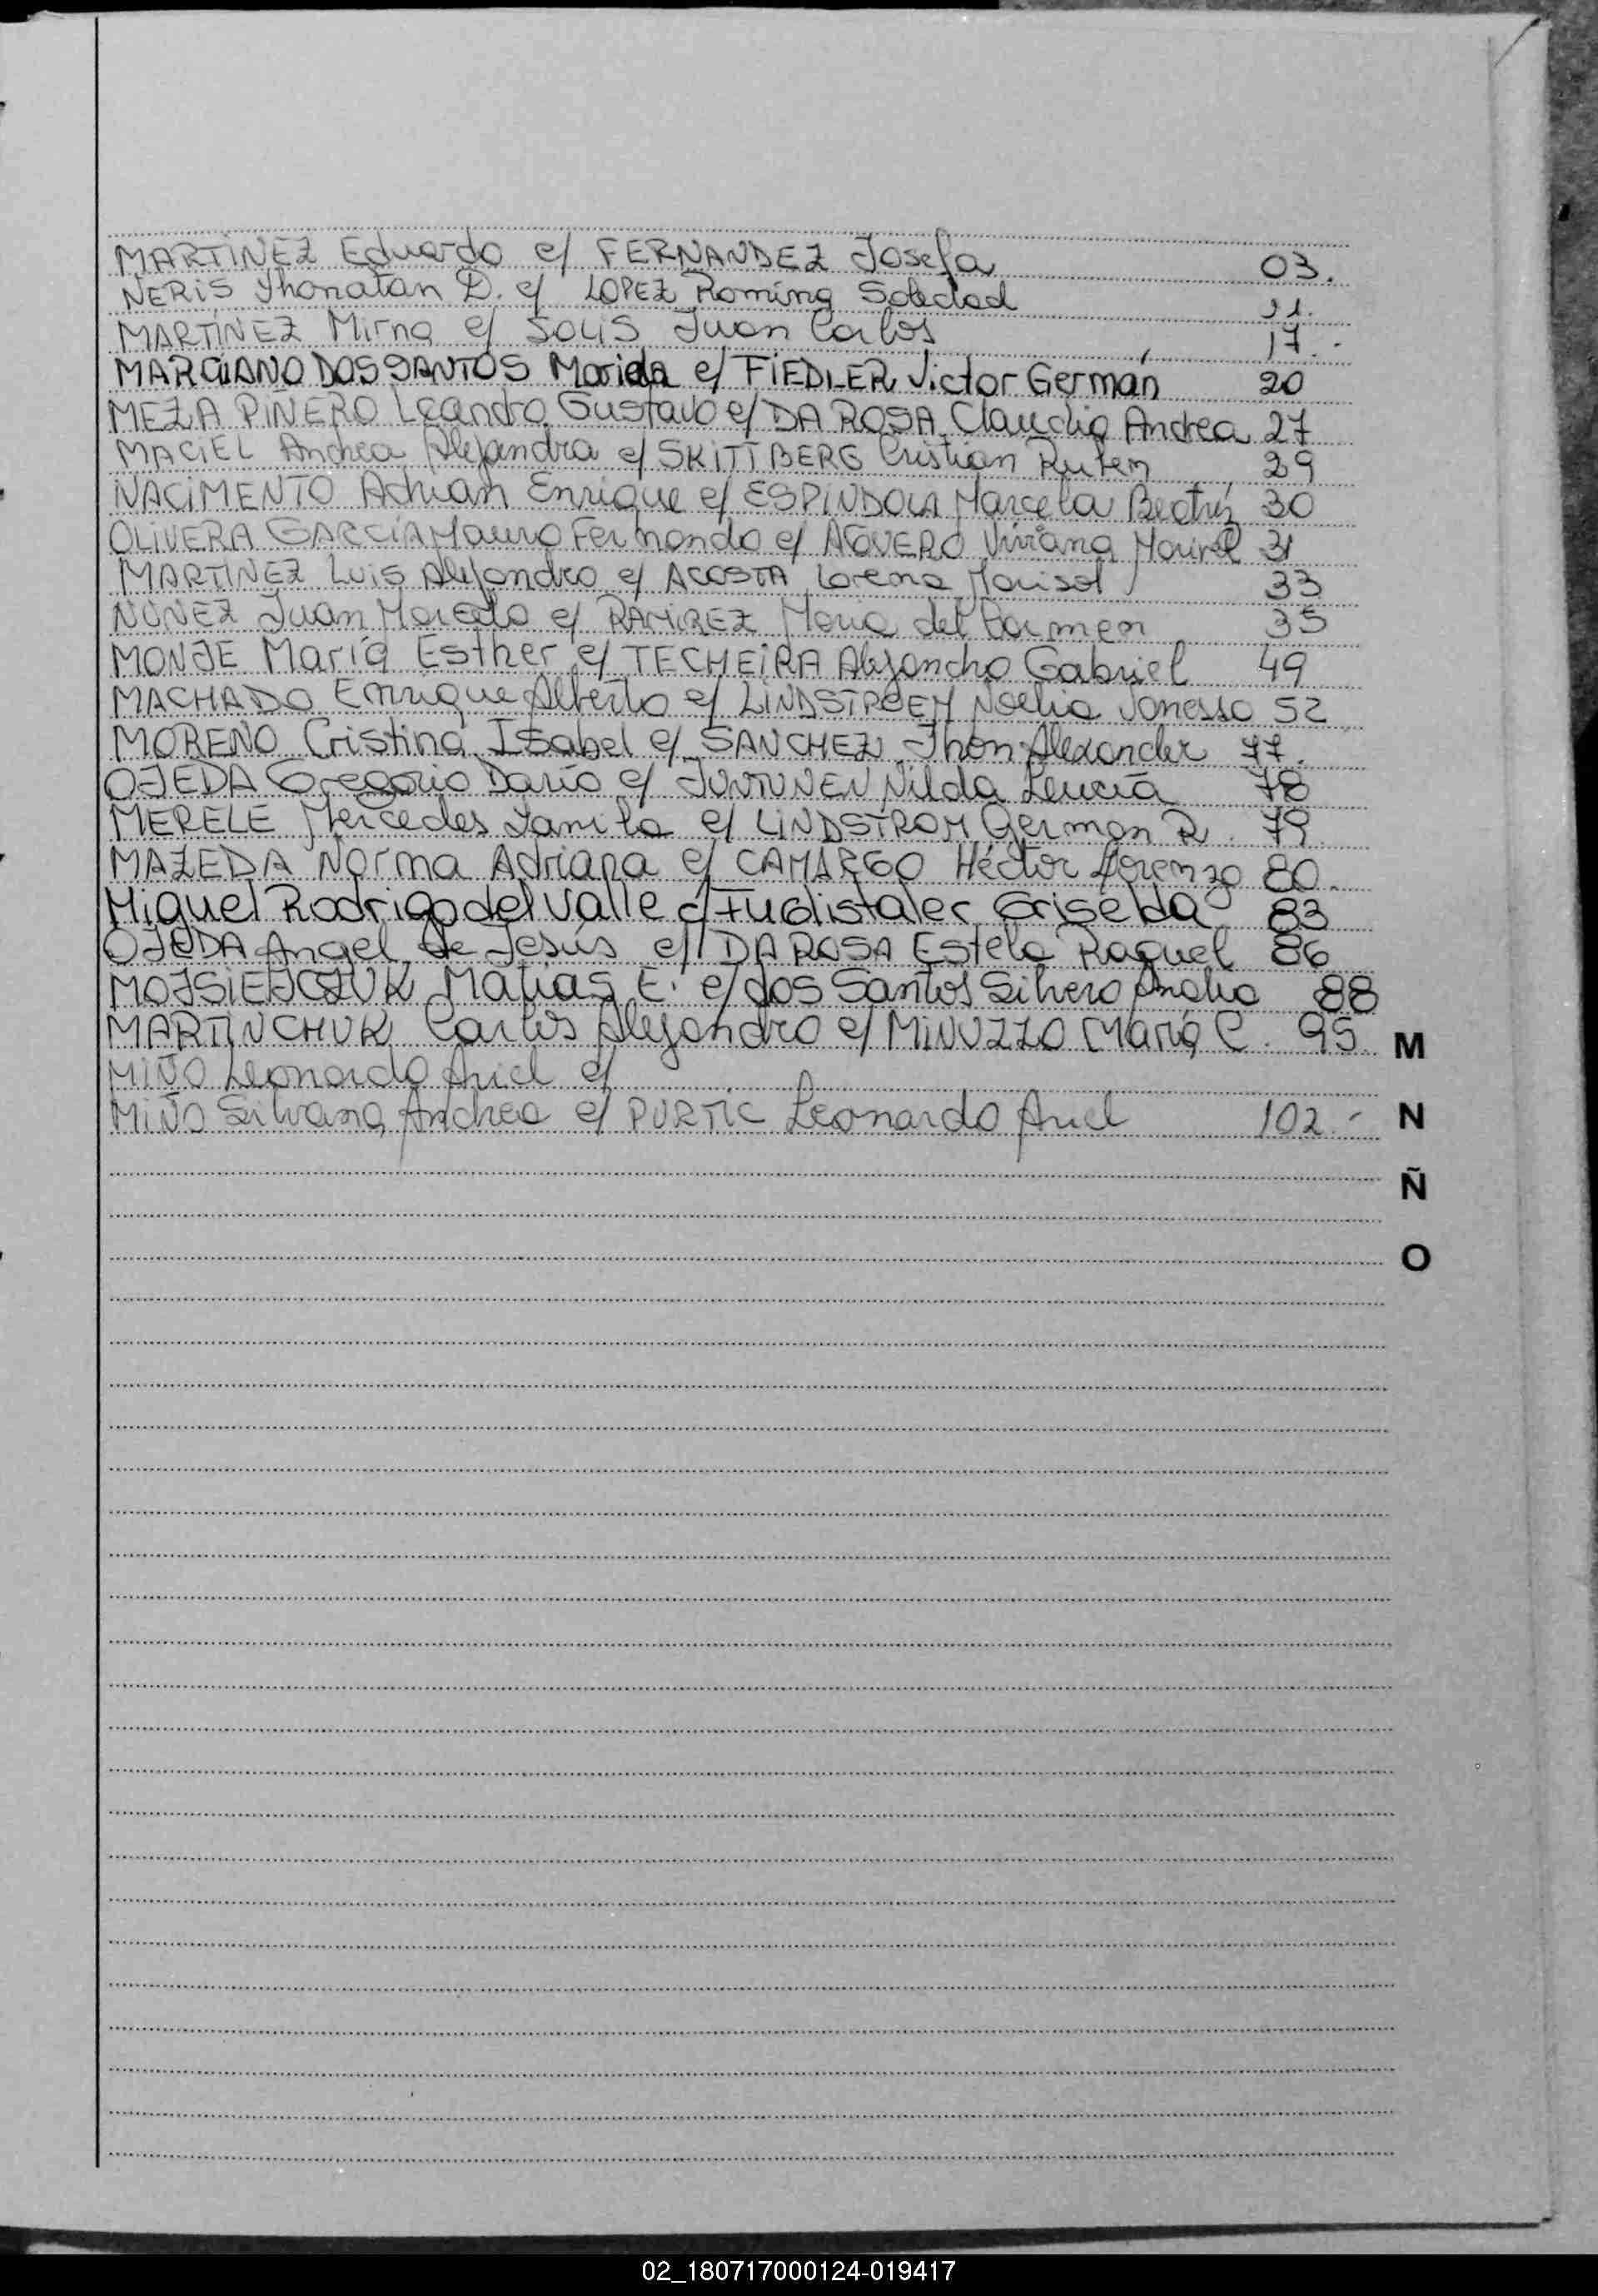 MARTÍNEZ Eduardo c/ FERNANDEZ Josefa 03.
NERIS Jhonatan D. c/ LOPEZ Romina Soledad 11.
MARTÍNEZ Mirna c/ SOLIS Juan Carlos 17.-
MARCIANO DOS SANTOS Mariela c/ FIEDLER Victor Germán 20
MEZA PIÑERO Leandro Gustavo c/ DA ROSA Claudia Andrea 27
MACIEL Andrea Alejandra c/ SKITTBERG Cristian Ruben 29
NACIMENTO Adrian Enrique c/ ESPINDOLA Marcela Beatríz 30
OLIVERA GARCÍA Mauro Fernando c/ AGÜERO Viviana Marivel 31
MARTINEZ Luis Alejandro c/ ACOSTA Lorena Marisol 33
NUÑEZ Juan Marcelo c/ RAMIREZ Maria del Carmen 35
MONJE María Esther c/ TECHEIRA Alejandro Gabriel 49
MACHADO Enrique Alberto c/ LINDSTROEM Noelia Vanessa 52
MORENO Cristina Isabel c/ SANCHEZ Jhon Alexander 77.
OJEDA Gregorio Darío c/ JUNTUNEN Nilda Leucia 78
MERELE Mercedes Yamila c/ LINDSTROM German R. 79.
MAZEDA Norma Adriana c/ CAMARGO Héctor Lorenzo 80.
Miguel Rodrigo del Valle c/ Fuglistaler Griselda 83
OJEDA Angel de Jesús c/ DA ROSA Estela Raquel 86
MOJSIEJCZUK Matias E. c/ dos Santos Silvero Analia 88
MARTINCHUK Carlos Alejandro c/ MINUZZO María C. 95
M
MIÑO Leonardo Ariel c/
MIÑO Silvana Andrea c/ PURTIC Leonardo Ariel 102.-
N
Ñ
O
02_180717000124-019417